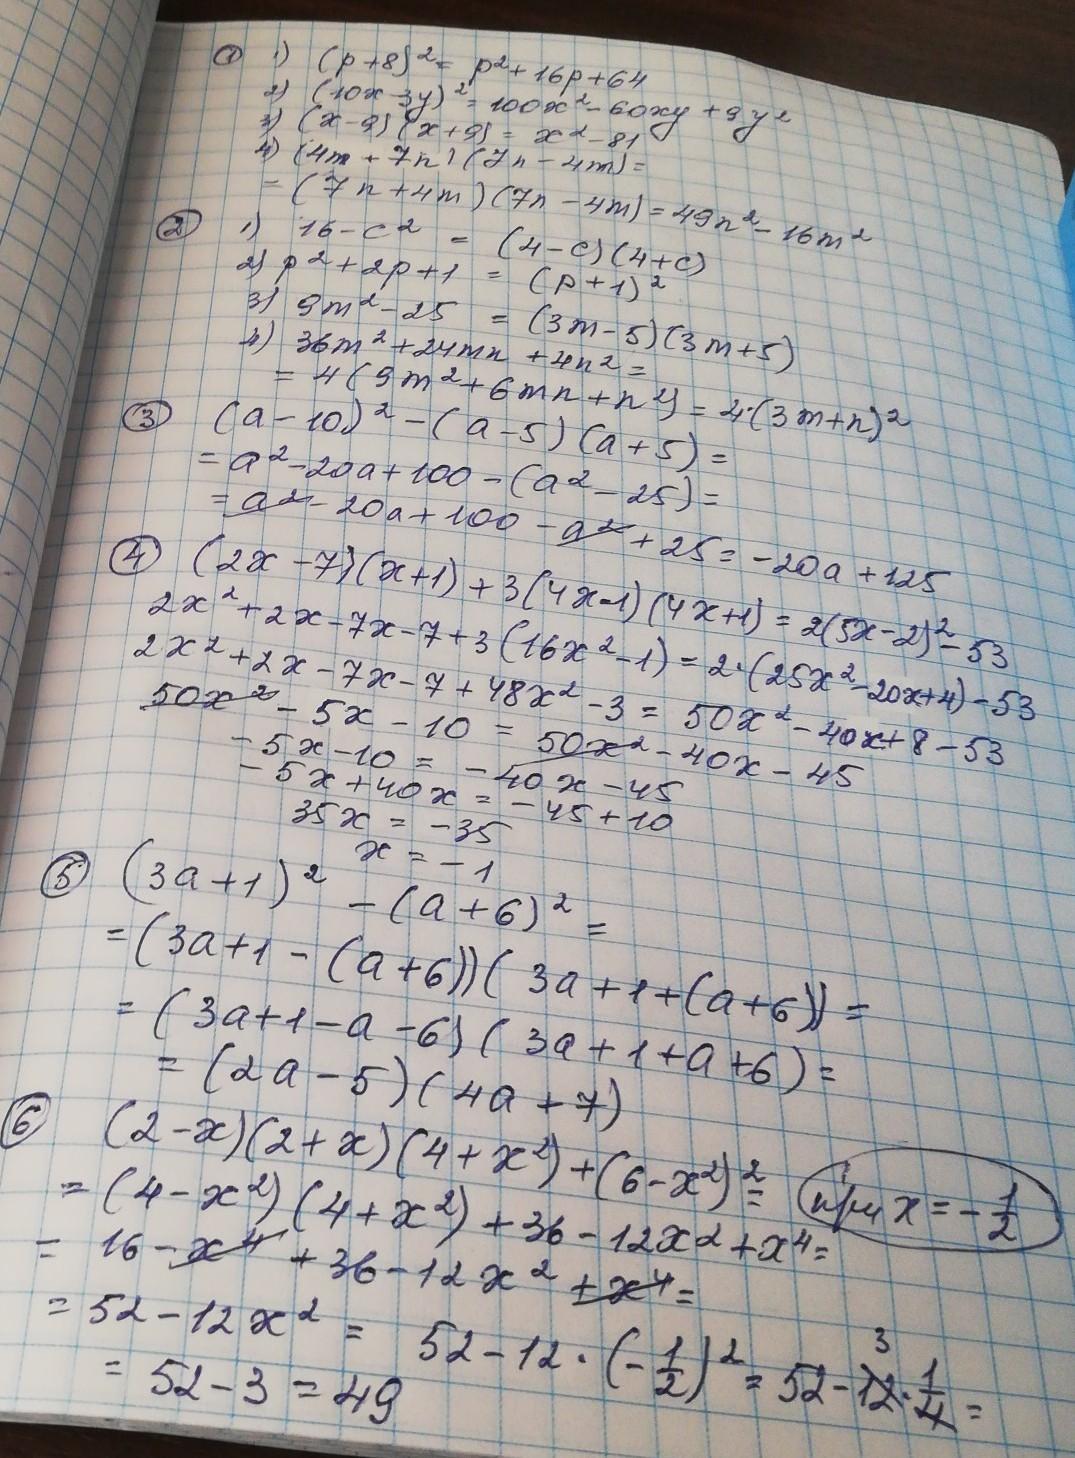 ① 1) (p+8)² = p²+16p+64
2) (10x-3y)² = 100x²-60xy+9y²
3) (x-9)(x+9) = x²-81
4) (4m+7n)(7n-4m)=
= (7n+4m)(7n-4m)=49n²-16m²
② 1) 16-c² = (4-c)(4+c)
2) p²+2p+1 = (p+1)²
3) 9m²-25 = (3m-5)(3m+5)
4) 36m²+24mn+4n²=
= 4(9m²+6mn+n²) = 4·(3m+n)²
③ (a-10)²-(a-5)(a+5)=
= a²-20a+100-(a²-25)=
= a²-20a+100-a²+25=-20a+125
④ (2x-7)(x+1)+3(4x-1)(4x+1)=2(5x-2)²-53
2x²+2x-7x-7+3(16x²-1)=2·(25x²-20x+4)-53
2x²+2x-7x-7+48x²-3=50x²-40x+8-53
50x²-5x-10=50x²-40x-45
-5x-10=-40x-45
-5x+40x=-45+10
35x=-35
x=-1
⑤ (3a+1)²-(a+6)²=
=(3a+1-(a+6))(3a+1+(a+6))=
=(3a+1-a-6)(3a+1+a+6)=
=(2a-5)(4a+7)
⑥ (2-x)(2+x)(4+x²)+(6-x²)²= при x=-1/2
=(4-x²)(4+x²)+36-12x²+x⁴=
=16-x⁴+36-12x²+x⁴=
=52-12x²=52-12·(-1/2)²=52-12·1/4=
3
=52-3=49